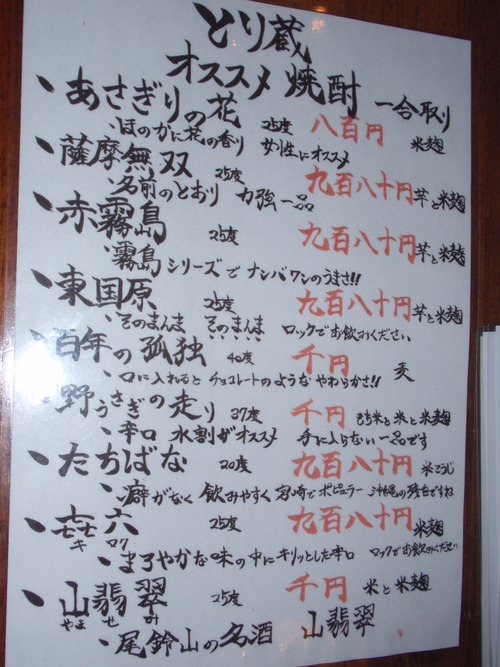 とり蔵
オススメ焼酎 一合取り
、あさぎりの花 25度 八百円 米麹
・ほのかに花の香り 女性にオススメ
、薩摩無双 25度 九百八十円 芋と米麹
・名前のとおり 力強い一品
、赤霧島 25度 九百八十円 芋と米麹
・霧島シリーズでナンバワンのうまさ!!
、東国原 25度 九百八十円 芋と米麹
・そのまんま そのまんま ロックでお飲みください
、百年の孤独 40度 千円 麦
・口に入れると チョコレートのような やわらかさ!!
、野うさぎの走り 37度 千円 もち米と米と米麹
・辛口 水割がオススメ 手に入らない一品です
、たちばな 20度 九百八十円 米こうじ
・癖がなく 飲みやすく 宮崎でポピュラー 沖縄の
、㐂六 25度 九百八十円 米麹
キ ロク
・まろやかな味の中にキリッとした辛口 ロックでお飲みください
、山翡翠 25度 千円 米と米麹
やませみ
・尾鈴山の名酒 山翡翠